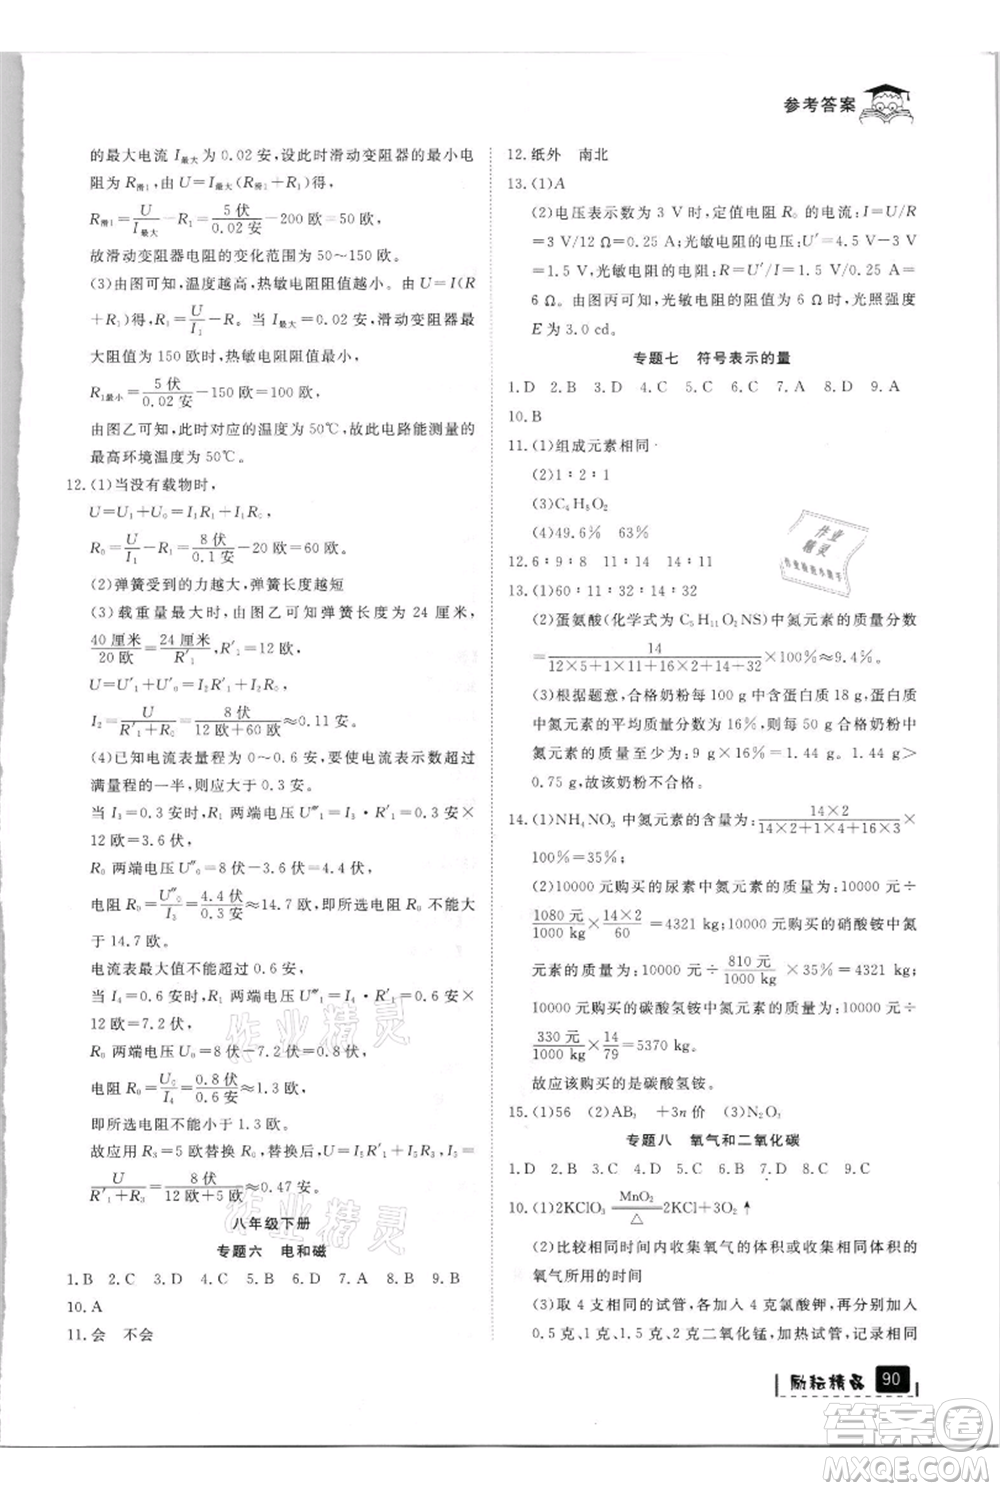 参考答案
的最大电流 I最大 为 0.02 安,设此时滑动变阻器的最小电
阻为 R滑1,由 U=I最大(R滑1+R1)得,
R滑1=U/I最大-R1=5伏/0.02安-200 欧=50 欧,
故滑动变阻器电阻的变化范围为 50~150 欧.
(3)由图可知,温度越高,热敏电阻阻值越小,由 U=I(R
+R1)得,R1=U/I1-R。当 I最大=0.02 安,滑动变阻器最
大阻值为 150 欧时,热敏电阻阻值最小,
R1最小=5伏/0.02安-150 欧=100 欧,
由图乙可知,此时对应的温度为 50℃,故此电路能测量的
最高环境温度为 50℃。
12.(1)当没有载物时,
U=U1+U0=I1R1+I1R0
R0=U/I1-R1=8伏/0.1安-20 欧=60 欧;
(2)弹簧受到的力越大,弹簧长度越短
(3)载重量最大时,由图乙可知弹簧长度为 24 厘米,
40厘米/20欧=24厘米/R′1,R′1=12 欧,
U=U′1+U′0=I2R′1+I2R0,
I2=U/(R′1+R0)=8伏/(12欧+60欧)≈0.11 安。
(4)已知电流表量程为 0~0.6 安,要使电流表示数超过
满量程的一半,则应大于 0.3 安。
当 I3=0.3 安时,R1 两端电压 U‴=I3·R′1=0.3 安×
12 欧=3.6 伏,
R0 两端电压 U″=8 伏-3.6 伏=4.4 伏,
电阻 R0=U″0/I3=4.4伏/0.3安≈14.7 欧,即所选电阻 R0 不能大
于 14.7 欧。
电流表最大值不能超过 0.6 安,
当 I4=0.6 安时,R1 两端电压 U=I4·R′1=0.6 安×
12 欧=7.2 伏,
R0 两端电压 U0=8 伏-7.2 伏=0.8 伏,
电阻 R0=U0/I4=0.8伏/0.6安≈1.3 欧,
即所选电阻不能小于 1.3 欧。
故应用 R3=5 欧的电阻替换 R0,其最大电流 I=
U/(R′1+R3)=8伏/(12欧+5欧)≈0.47 安。
八年级下册
专题六 电和磁
1.B 2.C 3.D 4.C 5.D 6.D 7.B 8.D 9.B
10.A
11.会 不会
12.纸外 南北
13.(1)A
(2)电压表示数为 3 V时,定值电阻 R0 的电流:I=U/R
=3 V/12 Ω=0.25 A;光敏电阻的电压:U′=4.5 V-3 V
=1.5 V,光敏电阻的阻值:R=U′/I=1.5 V/0.25 A=
6 Ω。由图丙可知,光敏电阻的阻值为 6 Ω时,光照强度
E 为 3.0 cd。
专题七 符号表示的量
1.D 2.B 3.D 4.C 5.C 6.C 7.A 8.D 9.A
10.B
11.(1)组成元素相同
(2)1∶2∶1
(3)C4H8O2
(4)49.6% 63%
12.6∶9∶8 11∶14 4∶11
13.(1)60∶11∶32∶14∶32
(2)蛋氨酸(化学式为 C5H11O2NS)中氮元素的质量分数
=14/(12×5+1×11+16×2+14+32)×100%≈9.4%。
(3)根据题意,合格奶粉每 100 g 中含蛋白质 18 g,蛋白质
中氮元素的平均质量分数为 16%,则每 50 g 合格奶粉中
氮元素的质量至少为:9 g×16%=1.44 g。1.44 g>
0.75 g,故该奶粉不合格。
14.(1)NH4NO3 中氮元素的含量为:14×2/(14×2+1×4+16×3)×
100%=35%;
(2)10000 元购买的尿素中氮元素的质量为:10000 元÷
1080元/1000 kg×14×2/60=4321 kg;10000 元购买的硝酸铵中氮
元素的质量为:10000 元÷810元/1000 kg×35%=4321 kg;
10000 元购买的碳酸氢铵中氮元素的质量为:10000 元÷
330元/1000 kg×14/79=5370 kg;
故应该购买的是碳酸氢铵。
15.(1)56 (2)AB3 +3n价 (3)N2O3
专题八 氧气和二氧化碳
1.D 2.B 3.D 4.B 5.B 6.B 7.D 8.D 9.D
10.(1)2KClO3 MnO2 △ 2KCl+3O2↑
(2)比较相同时间内收集氧气的体积或收集相同体积的
氧气所用的时间
(3)取 4 支相同的试管,各加入 4 克氯酸钾,再分别加入
0.5 克、1 克、2 克、4 克二氧化锰,加热试管,记录相同
励耘精品 90
作业精灵
作业精灵
作业
精灵
答案圈
MXQE.COM